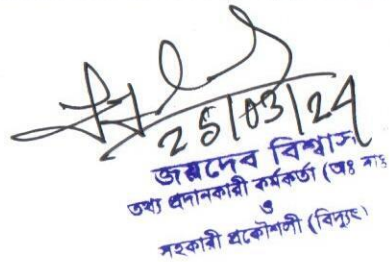 25/03/24
জয়দেব বিশ্বাস
তথ্য প্রদানকারী কর্মকর্তা (অঃ দাঃ
ও
সহকারী প্রকৌশলী (বিদ্যুৎ)